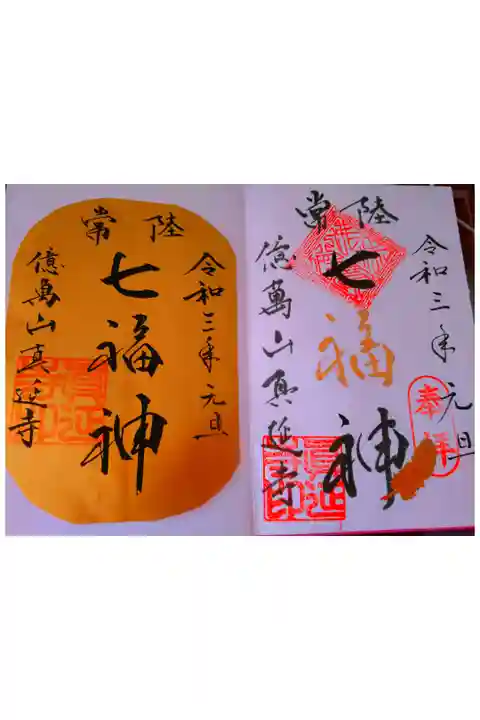 令和三年元旦
奉拝
常陸
七福神
億萬山真延寺
眞延寺印
令和三年元旦
常陸
七福神
億萬山真延寺
眞延寺印